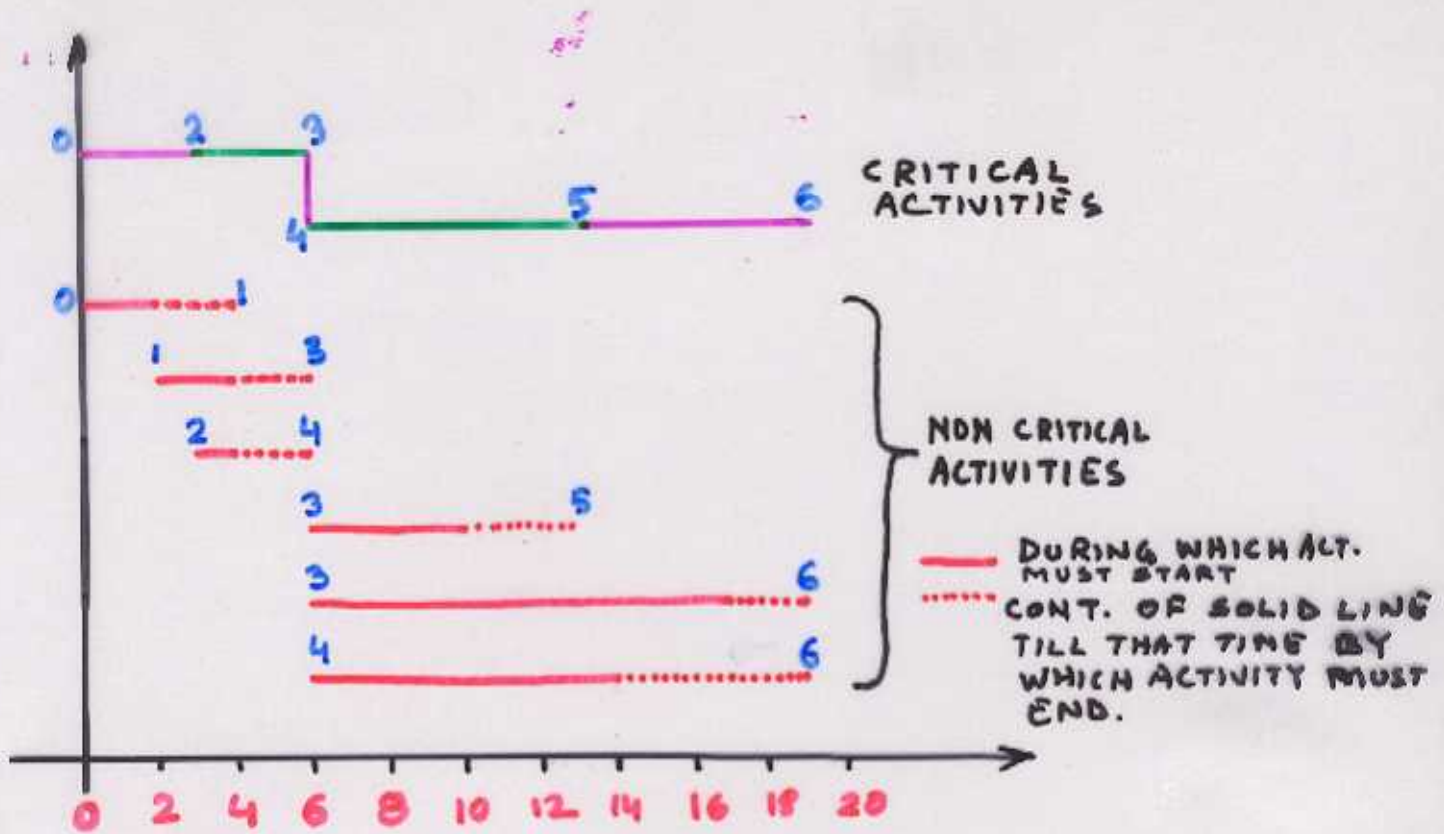 0 2 3
4 5 6
CRITICAL
ACTIVITIES
0 1
1 3
2 4
3 5
3 6
4 6
NON CRITICAL
ACTIVITIES
DURING WHICH ACT.
MUST START
CONT. OF SOLID LINE
TILL THAT TIME BY
WHICH ACTIVITY MUST
END.
0 2 4 6 8 10 12 14 16 18 20